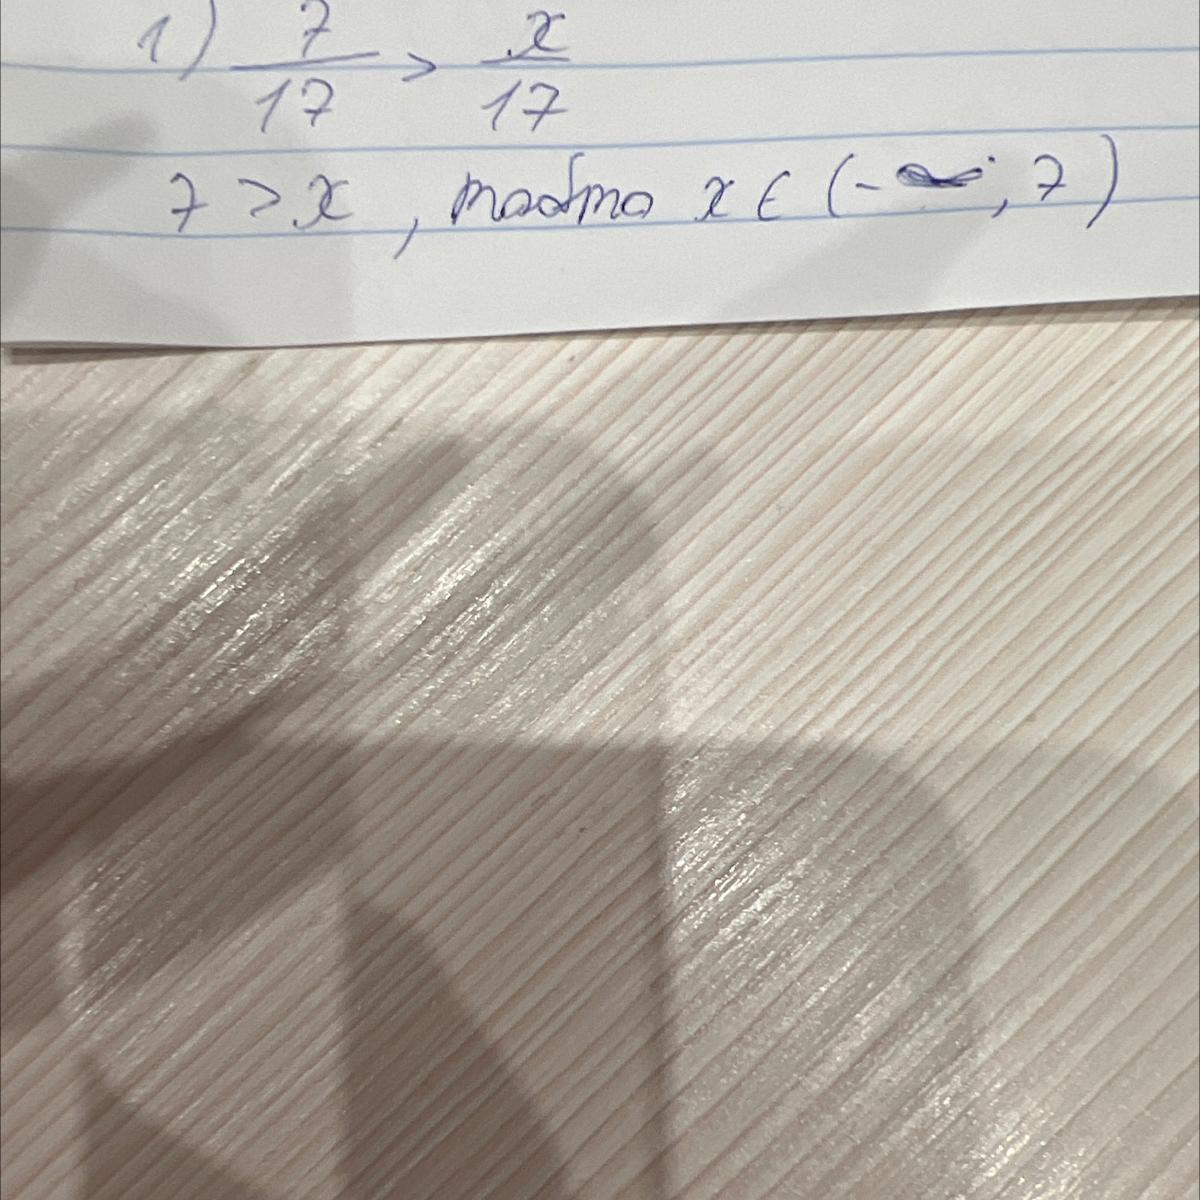 1) 7/17 > x/17
7 > x, тодто x ∈ (-∞, 7)